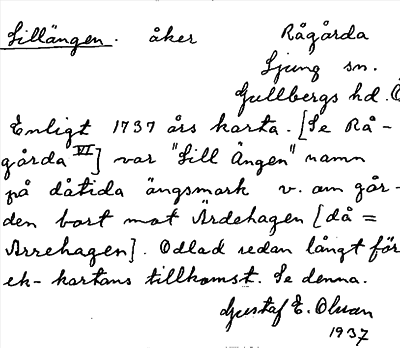 Sillängen. åker Rågårda
Ljung sn.
Gullbergs hd. Ö
Enligt 1737 års karta. [Se Rå-
gårda VI] var "Sill Ängen" namn
på dåtida ängsmark v. om går-
den bort mot Ärdehagen [då =
Arrehagen]. Odlad redan långt för
ek-kartans tillkomst. Se denna.
Gustaf E. Olsson
1937